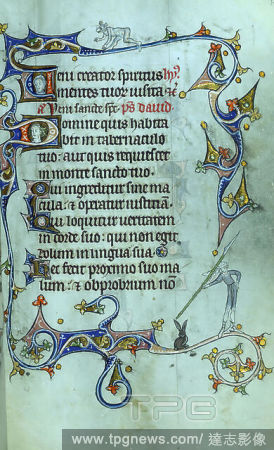 Veni creator spiritus hy͂.
mentes tuor visita ⁊c
a Veni sancte sp̄c. ps david.
Domine quis habita
bit in tabernaculo
tuo. aut quis requiescet
in monte sancto tuo.
Qui ingreditur sine ma
cula. ⁊ operatur iusticiam.
Qui loquitur veritatem
in corde suo. qui non egit
dolum in lingua sua.
Nec fecit proximo suo ma
lum. ⁊ obprobrium nō
TPG
www.tpgnews.com/達志影像